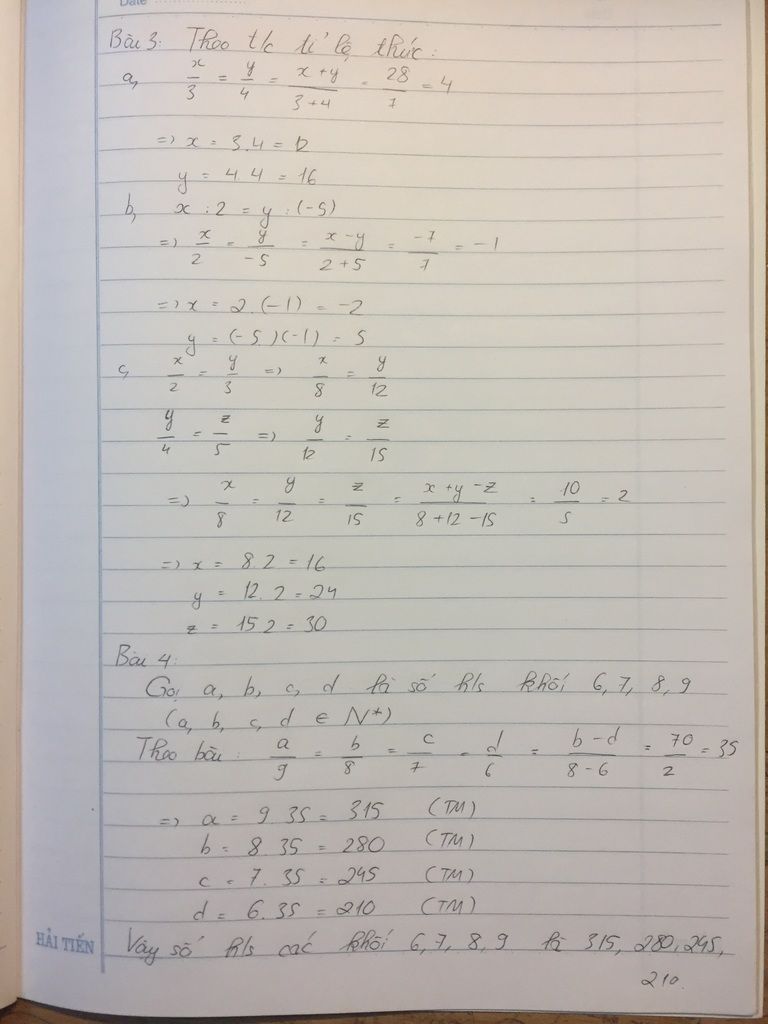 Date
Bài 3: Theo t/c tỉ lệ thức:
a, x/3 = y/4 = (x+y)/(3+4) = 28/7 = 4
=> x = 3.4 = 12
y = 4.4 = 16
b, x : 2 = y : (-5)
=> x/2 = y/-5 = (x-y)/(2+5) = -7/7 = -1
=> x = 2.(-1) = -2
y = (-5)(-1) = 5
c, x/2 = y/3 => x/8 = y/12
y/4 = z/5 => y/12 = z/15
=> x/8 = y/12 = z/15 = (x+y-z)/(8+12-15) = 10/5 = 2
=> x = 8.2 = 16
y = 12.2 = 24
z = 15.2 = 30
Bài 4:
Gọi a, b, c, d là số h/s khối 6, 7, 8, 9
(a, b, c, d ∈ N*)
Theo bài: a/9 = b/8 = c/7 = d/6 = (b-d)/(8-6) = 70/2 = 35
=> a = 9.35 = 315 (TM)
b = 8.35 = 280 (TM)
c = 7.35 = 245 (TM)
d = 6.35 = 210 (TM)
HẢI TIẾN
Vậy số h/s các khối 6, 7, 8, 9 là 315, 280, 245,
210.